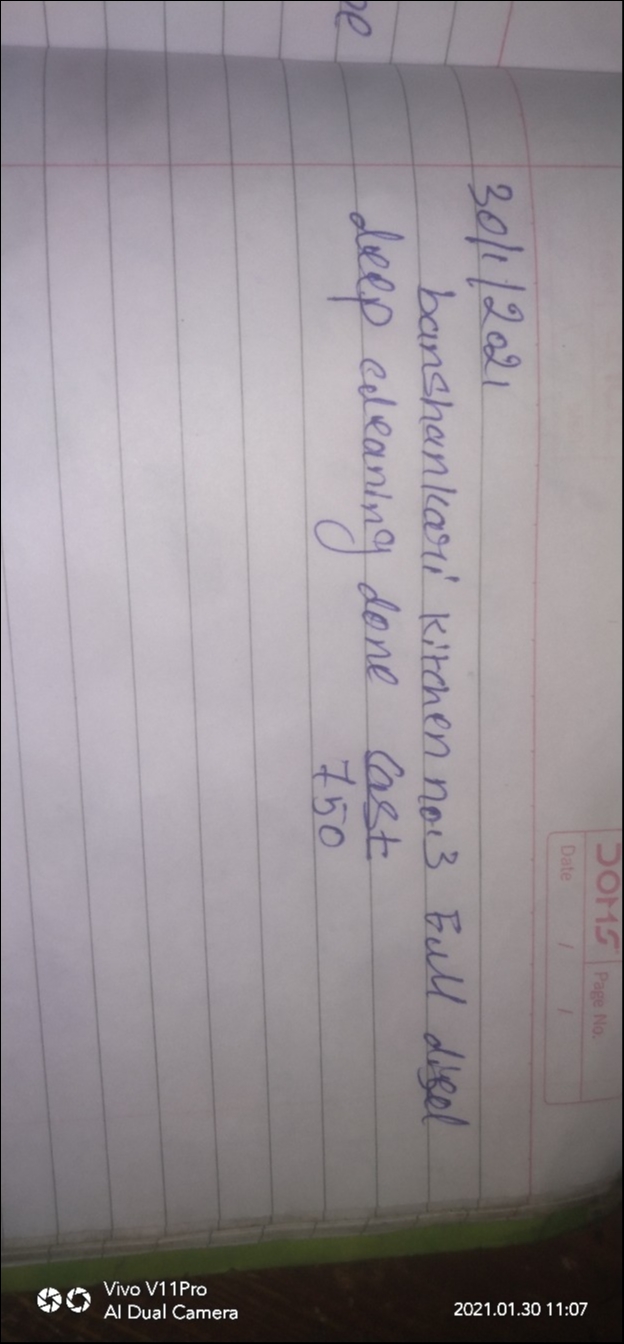 DOMS Page No.
Date / /
30/1/2021
banshankari kitchen no.3 Full disel
deep cdeaning done Cost
750
Vivo V11Pro
AI Dual Camera
2021.01.30 11:07